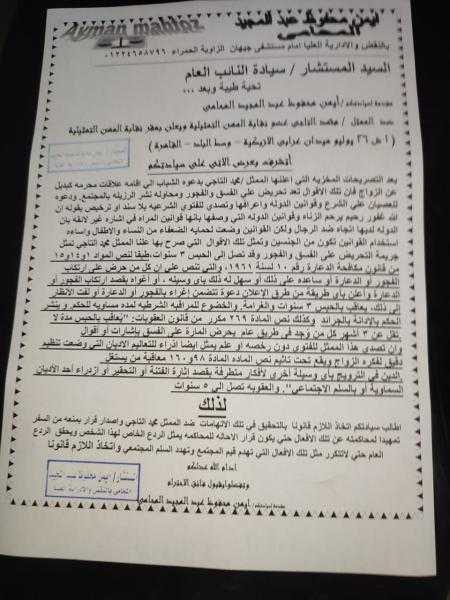 ايمن محفوظ عبد المجيد
المحامى
Ayman mahfoz
بالنقض والادارية العليا امام مستشفى جيهان الزاوية الحمراء / ٠١٢٢٤٦٥٨٧٩٦
السيد المستشار / سيادة النائب العام
تحية طيبة وبعد ...
مقدمه لسيادتكم / أيمن محفوظ عبد المجيد المحامى
ضد الممثل / محمد التاجي عضو نقابة المهن التمثيلية ويعلن بمقر نقابة المهن التمثيلية
(١ ش ٢٦ يوليو ميدان عرابى الازبكية – وسط البلد – القاهرة)
أتشرف بعرض الآتى على سيادتكم
بعد التصريحات المخزيه التي اعلنها الممثل /محمد التاجي بدعوه الشباب الي اقامه علاقات محرمه كبديل
عن الزواج فان تلك الاقوال تعد تحريض علي الفسق والفجور ومحاوله نشر الرزيله بالمجتمع. ودعوه
للعصيان علي الشرع وقوانين الدوله واعرافها وتصدي للفتوي الشرعيه بلا سند او ترخيص بقوله ان
الله غفور رحيم يرحم الزناه وقوانين الدوله التي وصفها بانها قوانين المراه في اشاره غير لائقه بان
الدوله لديها اتجاه ضد الرجال ولكن القوانين وضعت لحمايه الضعفاء من النساء والاطفال واساءه
استخدام القوانين تكون من الجنسين وتمثل تلك الاقوال التي صرح بها علنا الممثل محمد التاجي تمثل
جريمة التحريض علي الفسق والفجور وقد تصل الي الحبس ٣ سنوات،طبقا لنص المواد ١و١٤و١٥
من قانون مكافحة الدعارة رقم ١٠ لسنة ١٩٦١، والتي تنص على إن كل من حرض على ارتكاب
الفجور أو الدعارة أو ساعده على ذلك أو سهل له ذلك باى وسيله ، أو أغواه بقصد ارتكاب الفجور أو
الدعارة واعلن باي طريقة من طرق الاعلان دعوة تتضمن اغراء بالفجور أو الدعارة أو لفت الانظار
إلى ذلك. يعاقب بالحبس ٣ سنوات والغرامة. والخضوع للمراقبه الشرطيه لمده مساويه للحكم و ينشر
الحكم بالادانة بالجرائد وكذلك نص المادة ٢٦٩ مكرر من قانون العقوبات: "يعاقب بالحبس مدة لا
تقل عن ٣ أشهر كل من وجد في طريق عام يحرض المارة على الفسق بإشارات أو أقوال
وان تصدي هذا الممثل للفتوى دون رخصه او علم يمثل ايضا ازراء للتعاليم الاديان التي وضعت تنظيم
دقيق لفكره الزواج ويقع تحت تاثيم نص الماده المادة ٩٨و ١٦٠ معاقبة من يستغل
الدين في الترويج بأي وسيلة أخرى لأفكار متطرفة بقصد اثارة الفتنة أو التحقير أو إزدراء أحد الأديان
السماوية أو بالسلم الاجتماعي". والعقوبه تصل الي ٥ سنوات
لذلك
اطالب سيادتكم اتخاذ اللازم قانونا بالتحقيق في تلك الاتهامات ضد الممثل محمد التاجي واصدار قرار بمنعه من السفر
تمهيدا لمحاكمته عن تلك الافعال حتي يكون قرار الاحاله للمحاكمه يمثل الردع الخاص لهذا الشخص ويحقق الردع
العام حتي لاتتكرر مثل تلك الافعال التي تهدم قيم المجتمع وتهدد السلم المجتمعي واتخاذ اللازم قانونا
ادام الله عدلكم
وتفضلوا بقبول فائق الاحترام
مقدمه لسيادتكم / أيمن محفوظ عبد المجيد المحامى
مستشار/ ايمن محفوظ عبد المجيد
المحامى بالنقض والادارية العليا